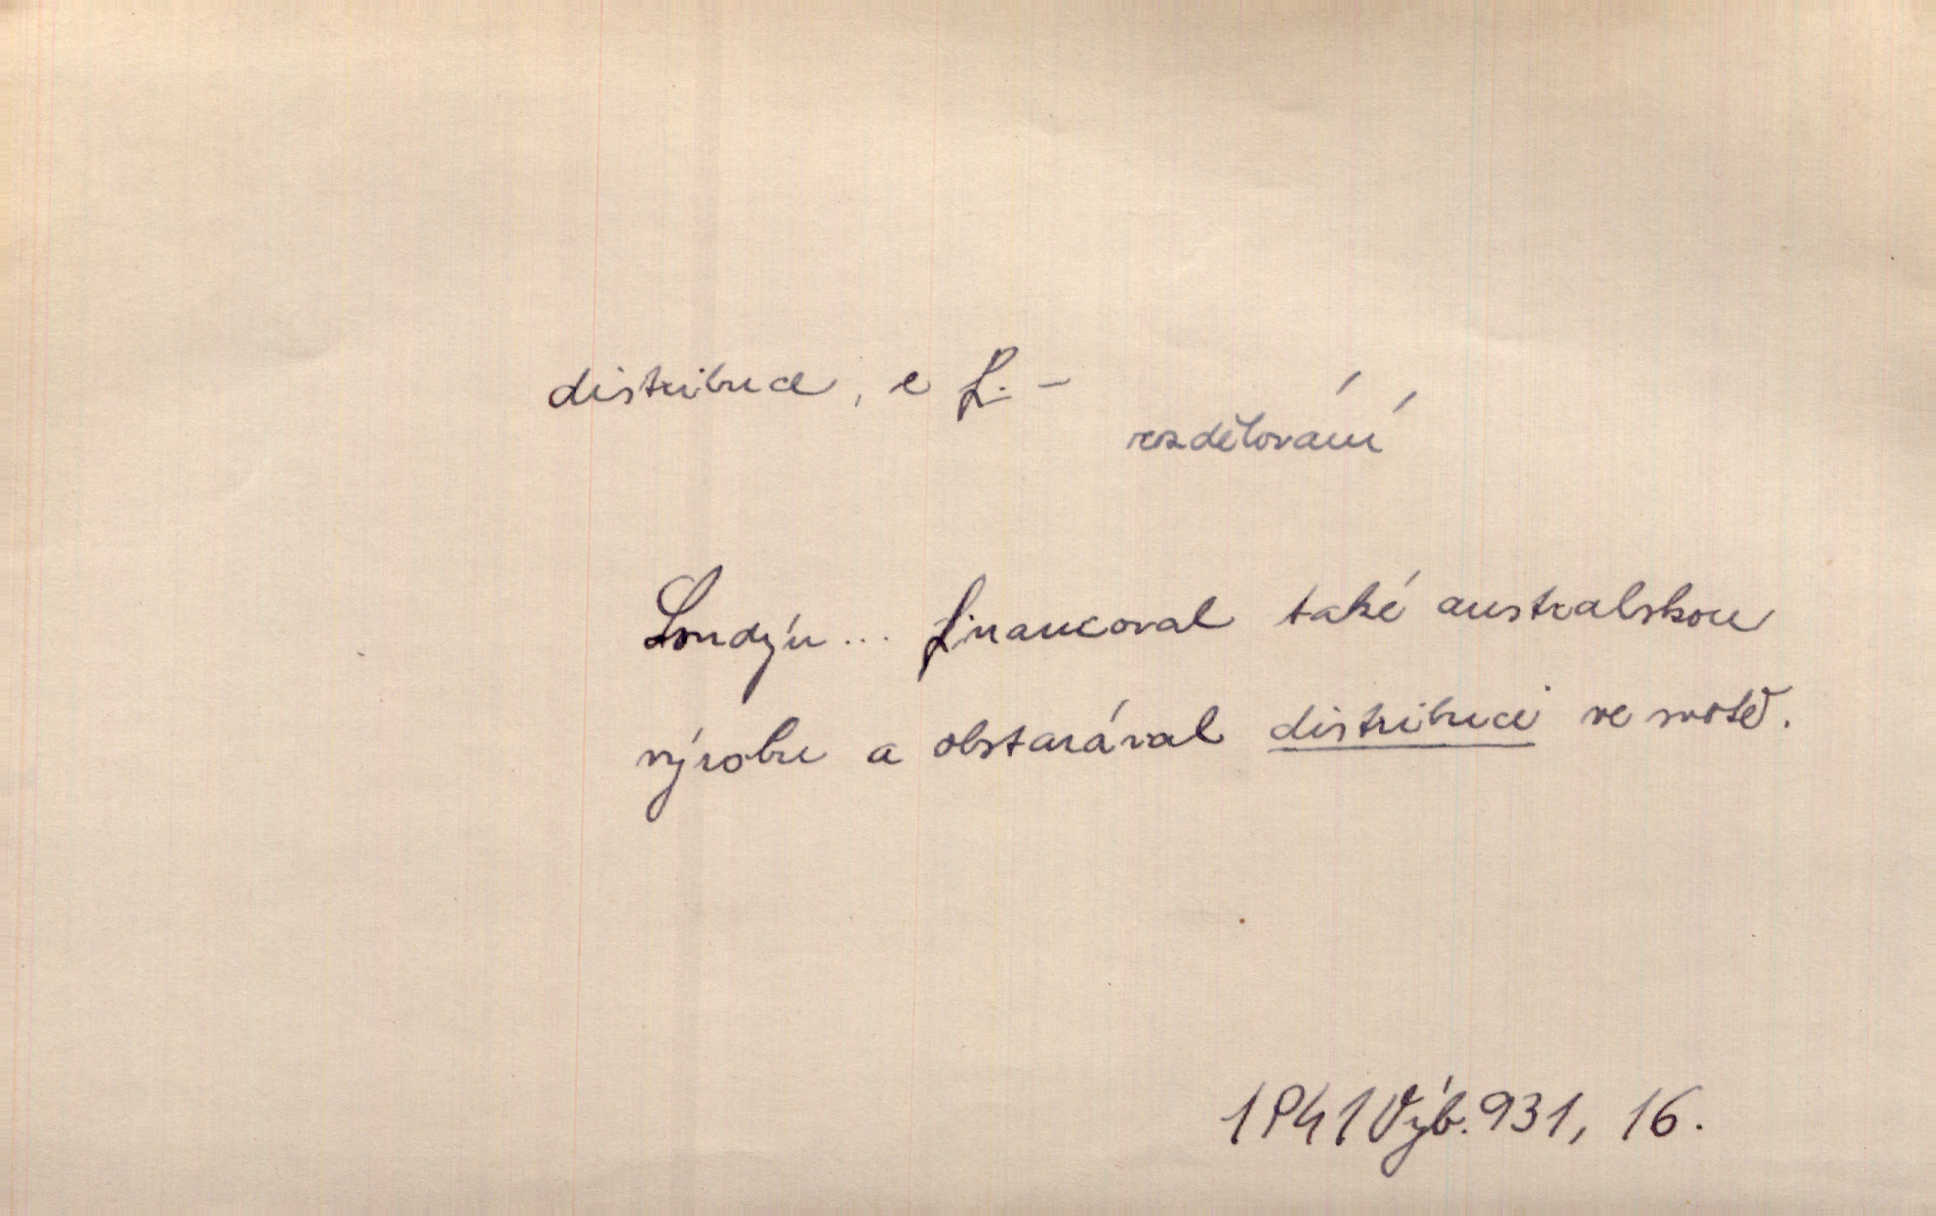 distribuce, e f. –
rozdělování
Londýn... financoval také australskou
výrobu a obstarával distribuci ve světě.
1941 Výb. 931, 16.